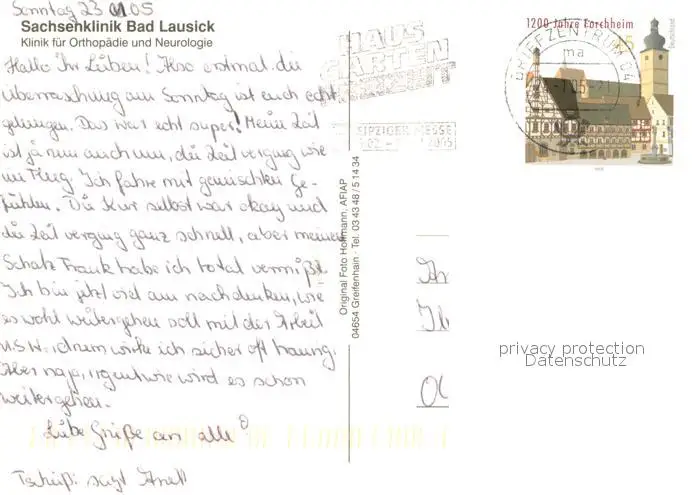 Sonntag 23.01.05
Sachsenklinik Bad Lausick
Klinik für Orthopädie und Neurologie
Hallo ihr Lieben! Also erstmal die
Überraschung am Sonntag ist euch echt
gelungen. Das war echt super! Meine Zeit
ist ja nun auch um, die Zeit verging wie
im Flug. Ich fahre mit gemischten Ge-
fühlen. Die Kur selbst war okay und
die Zeit verging ganz schnell, aber meinen
Schatz Frank habe ich total vermißt.
Ich bin jetzt viel am nachdenken, wie
es wohl weitergehen soll mit der Arbeit
usw. drum wirke ich sicher oft traurig.
Aber naja, irgendwie wird es schon
weitergehen.
Liebe Grüße an alle
Tschüß: sagt Anett
Original Foto Hoffmann, AFIAP
04654 Greifenhain · Tel. 03 43 48 / 5 14 34
HAUS
GARTEN
FREIZEIT
LEIPZIGER MESSE
2005
BRIEFZENTRUM 04
ma
1200 Jahre Forchheim
Deutschland
privacy protection
Datenschutz